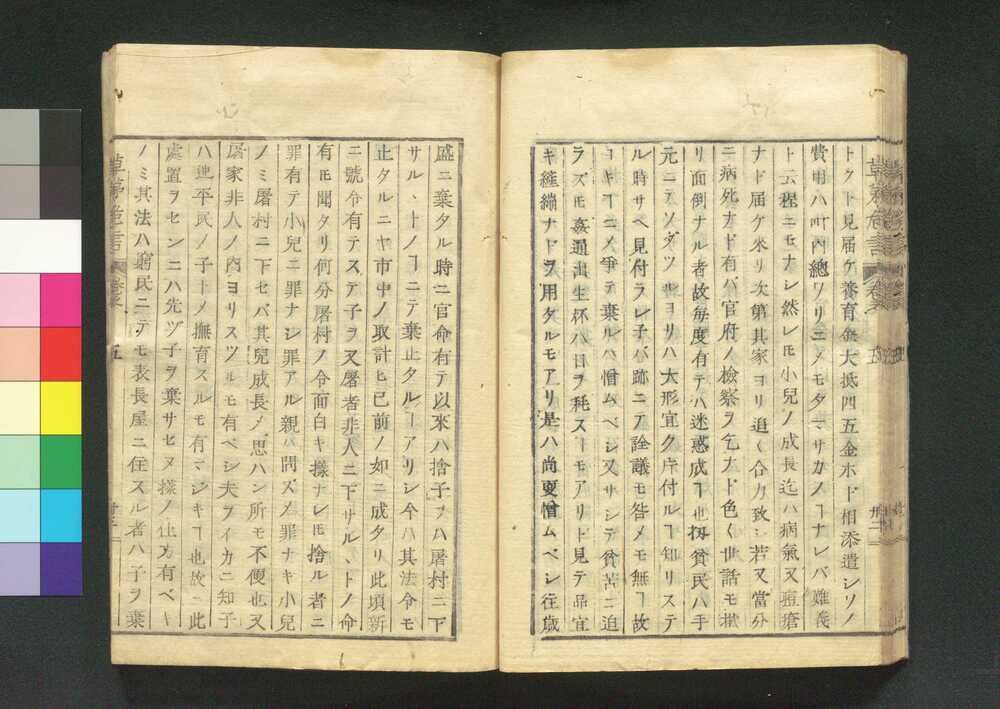 トクト見届ケ養育金大抵四五金ホド相添遣シソノ
費用ハ町内總ワリニメモタヾサカノヿナレバ難義
ト云程ニモナシ然レ𪜈小兒ノ成長迄ハ病氣又痘瘡
ナド届ケ來リ次第其家ヨリ追〱合力致シ若又當分
ニ病死ナド有バ官府ノ檢察ヲ乞ナド色〱世話モ掛
リ面倒ナル者故毎度有テハ迷惑成ヿ也扨貧民ハ手
元ニテソダツルヨリハ大形宜ク片付ルヿ知リステ
ル時サヘ見付ラレ子バ跡ニテ詮議モ咎メモ無ヿ故
ヨキヿニメ爭テ棄ルハ憎ムベシ又サシテ貧苦ニ迫
ラズ𪜈姦通出生杯ハ日ヲ耗スヿモアリト見テ品宜
キ繦緥ナドヲ用タルモアリ是ハ尚更憎ムベシ往歳
盛ニ棄タル時ニ官命有テ以來ハ捨子ヲハ屠村ニ下
サル、トノヿニテ棄止タルヿアリシ今ハ其法令モ
止タルニヤ市中ノ取計ヒ已前ノ如ニ成タリ此頃新
ニ號令有テステ子ヲ又屠者非人ニ下サル、トノ命
有𪜈聞タリ何分屠村ノ令面白キ樣ナレ𪜈捨ル者ニ
罪有テ小兒ニ罪ナシ罪アル親ハ問ズメ罪ナキ小兒
ノミ屠村ニ下セバ其兒成長メ思ハン所モ不便也又
屠家非人ノ内ヨリスツルモ有ベシ夫ヲイカニ知子
ハ迚平民ノ子トメ撫育スルモ有マジキヿ也故ニ此
處置ヲセンニハ先ヅ子ヲ棄サセヌ樣ノ仕方有ベキ
ノミ其法ハ窮民ニテモ表長屋ニ住スル者ハ子ヲ棄
草茅危言
五